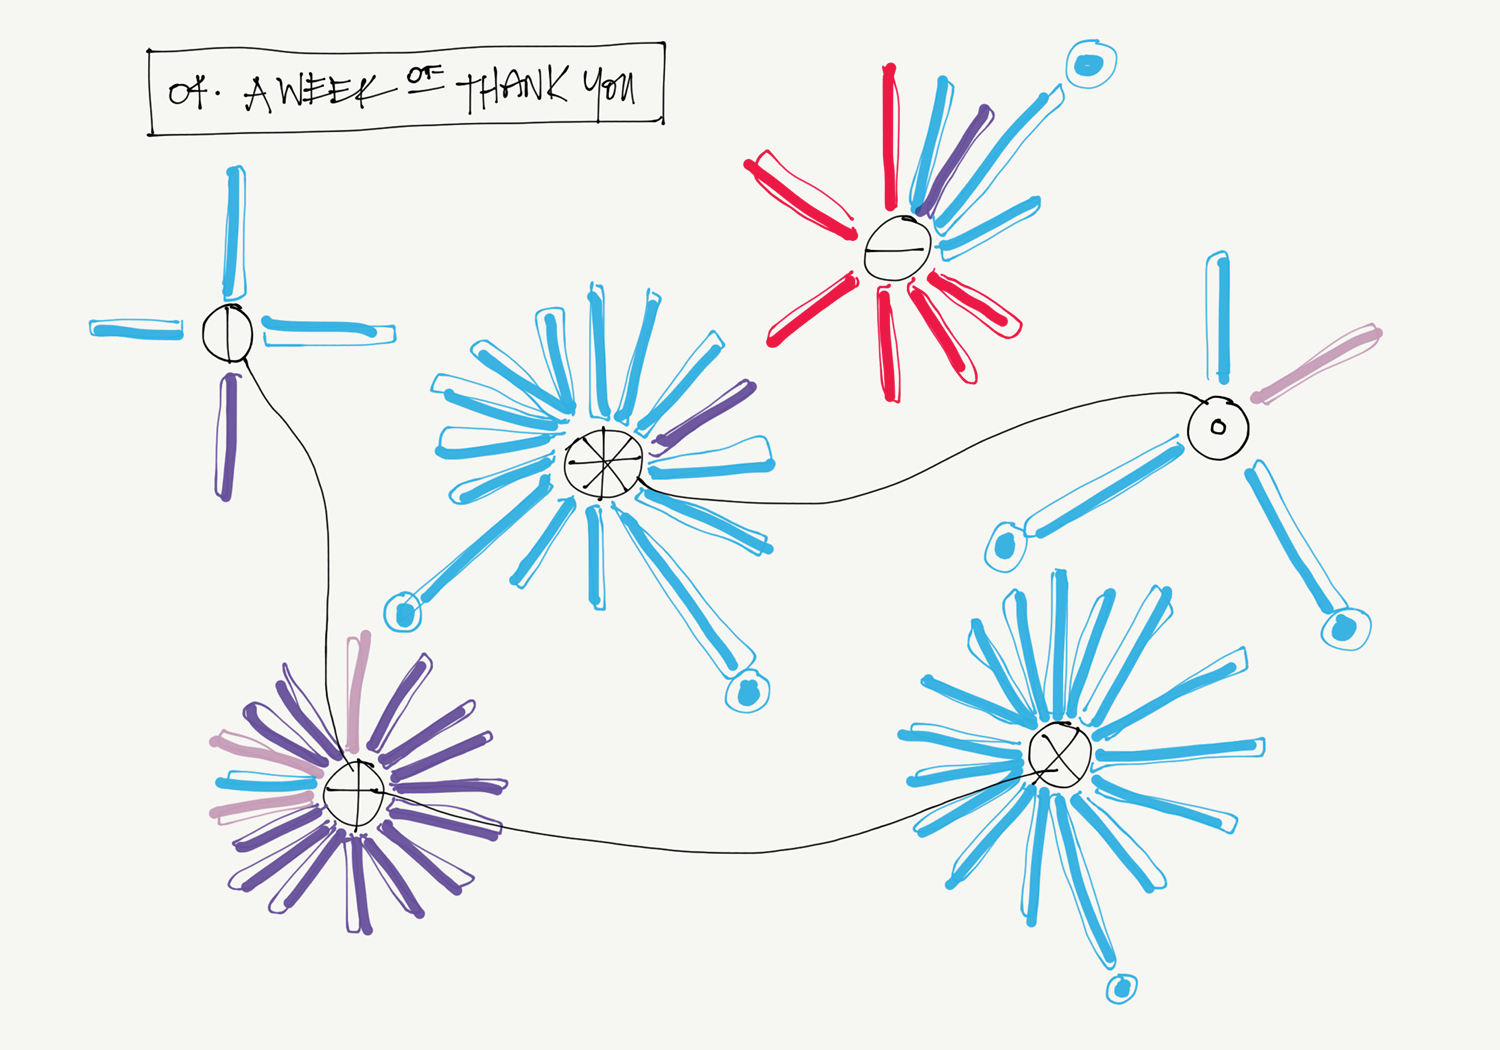 04. A WEEK OF THANK YOU